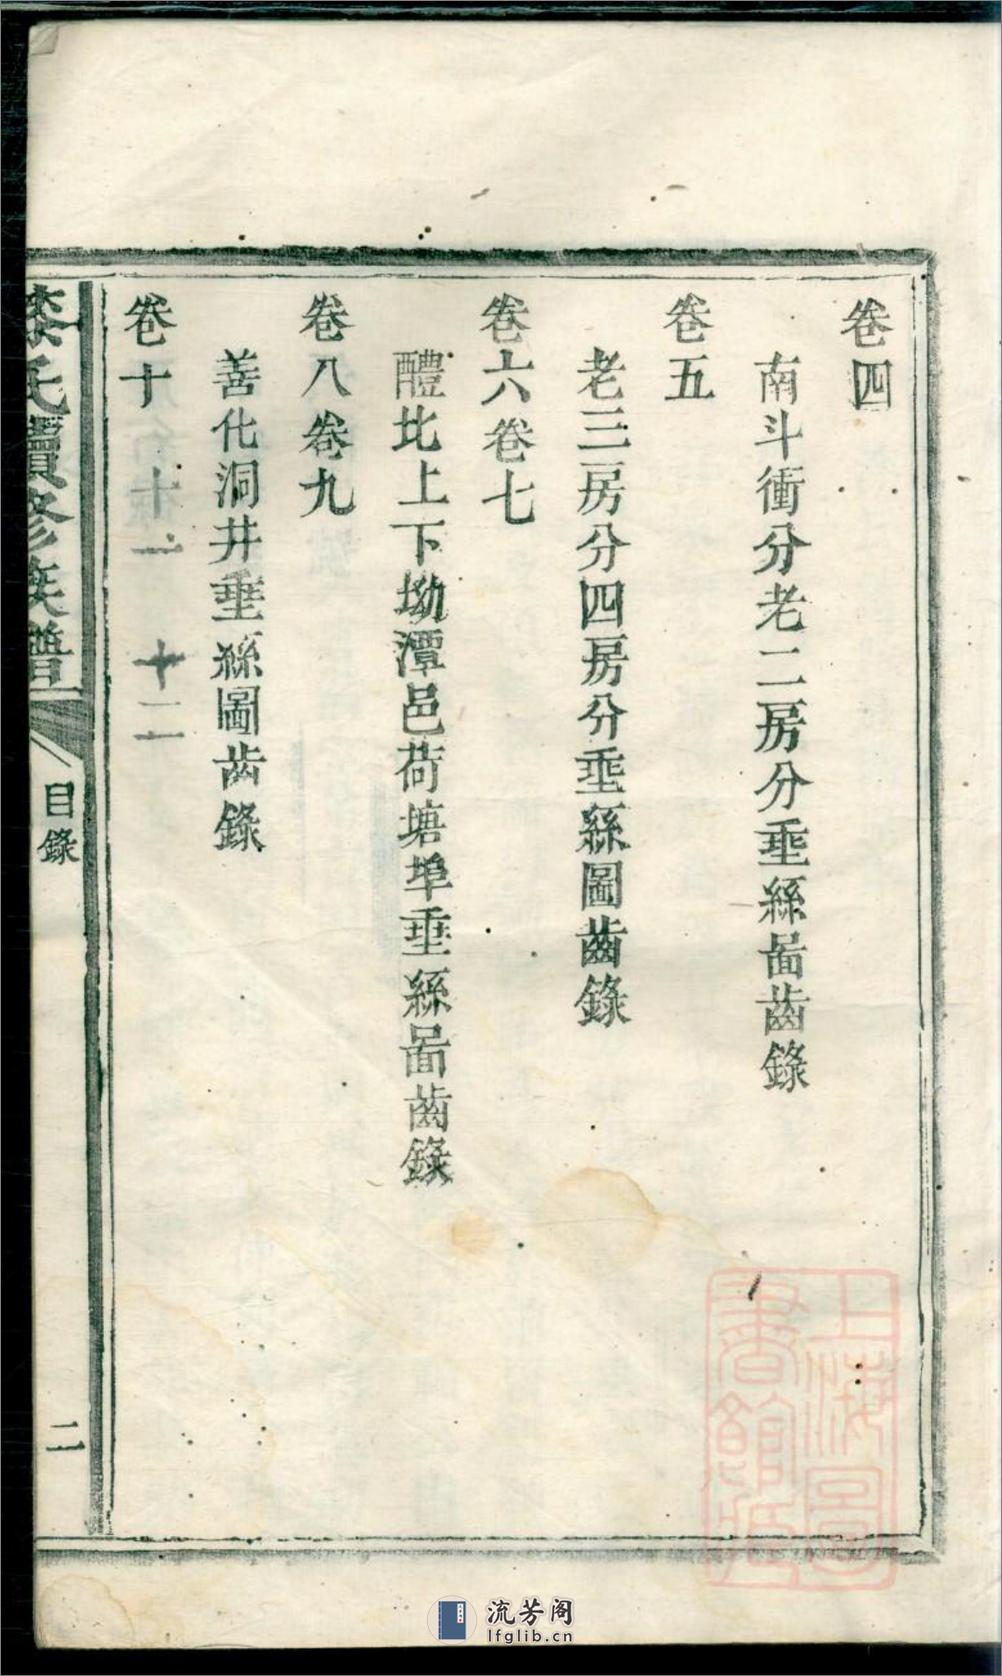 卷四
南斗衝分老二房分垂絲啚齒錄
卷五
老三房分四房分垂絲圖齒錄
卷六卷七
醴北上下坳潭邑荷塘埠垂絲啚齒錄
卷八卷九
善化洞井垂絲圖齒錄
卷十 十一 十二
漆氏續修族譜
目錄
二
上海圖書館藏
流芳阁
lfglib.cn